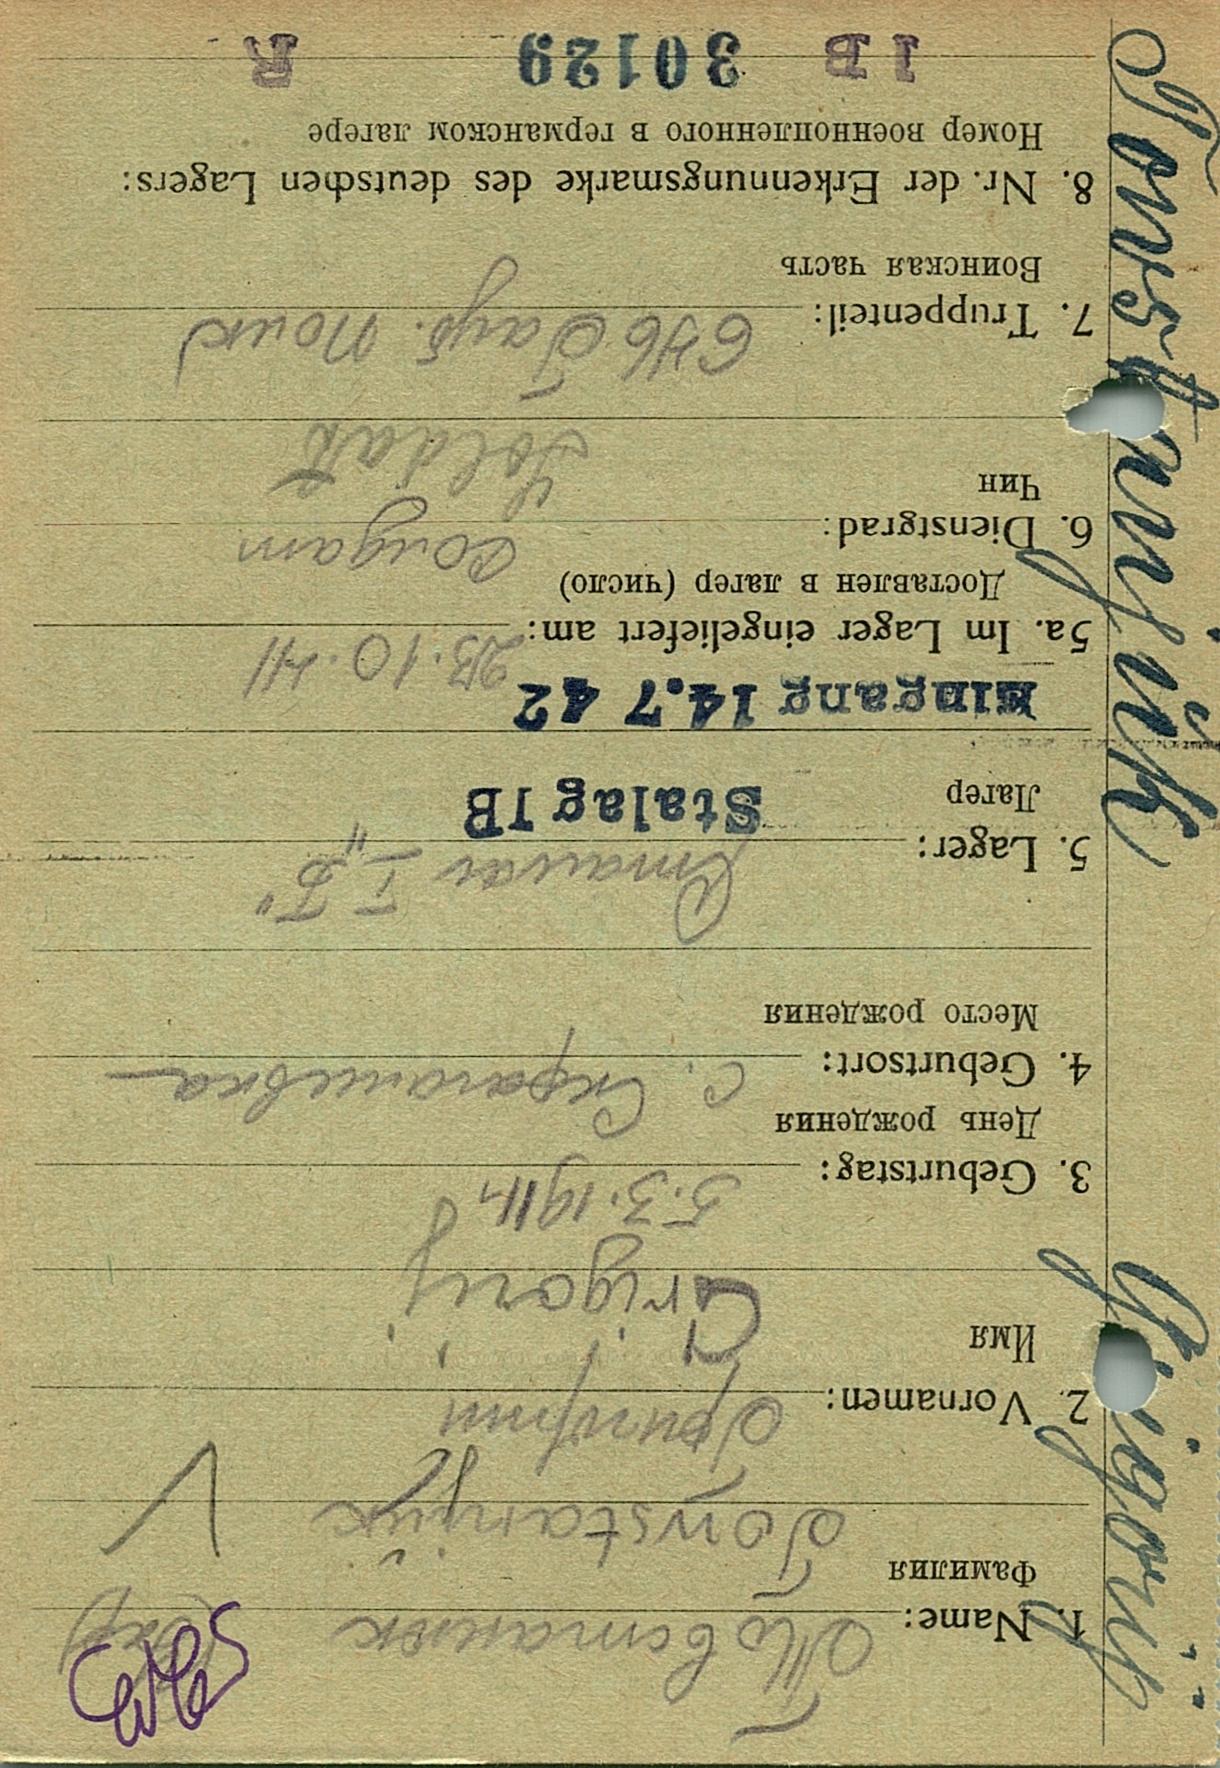 Towstanjuk Grigorij
1. Name: Товстанюк
Фамилия
Towstanjuk
V
2. Vornamen: Григорий
Имя
Grigorij
3. Geburtstag: 5.3.1911
День рождения
4. Geburtsort: с. Скрагашевка
Место рождения
5. Lager: Сталаг I "Б"
Лагер
Stalag IB
Eingang 14.7 42
5a. Im Lager eingeliefert am: 23.10.41
Доставлен в лагер (число)
6. Dienstgrad: солдат
Чин
Soldat
7. Truppenteil: 646 Полк
Воинская часть
8. Nr. der Erkennungsmarke des deutschen Lagers:
Номер военнопленного в германском лагере
IB 30129 R